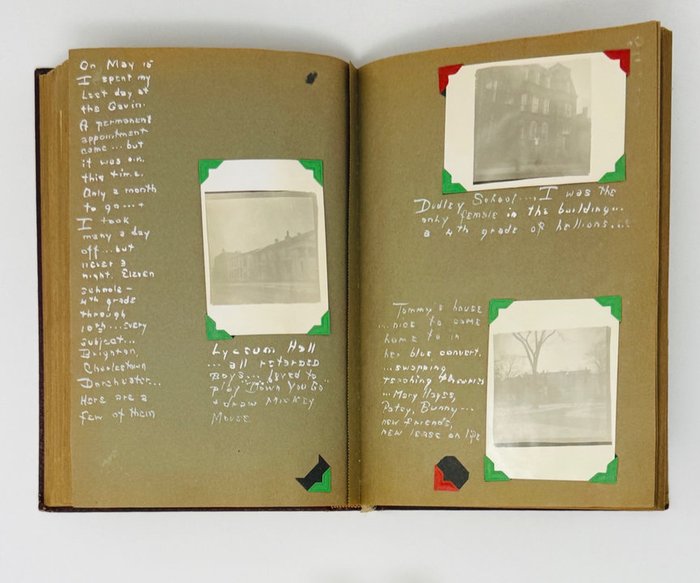 On May 15
I spent my
Last day at
the Gavin.
A permanent
appointment
came... but
it was on
this time.
Only a month
to go...+
I took
many a day
off... but
never a
night. Eleven
schools -
4th grade
through
10th... every
subject...
Brighton,
Charlestown
Dorchester...
Here are a
few of them
Lyceum Hall
... all retarded
Boys... loved to
play "Down You Go"
+ draw Mickey
Mouse.
Dudley School... I was the
only female in the building...
a 4th grade of hellions...
Tommy's house
... nice to come
home to in
her blue convert.
... swapping
teaching theories
... Mary Hayes,
Patsy, Bunny...
new friends,
new lease on life